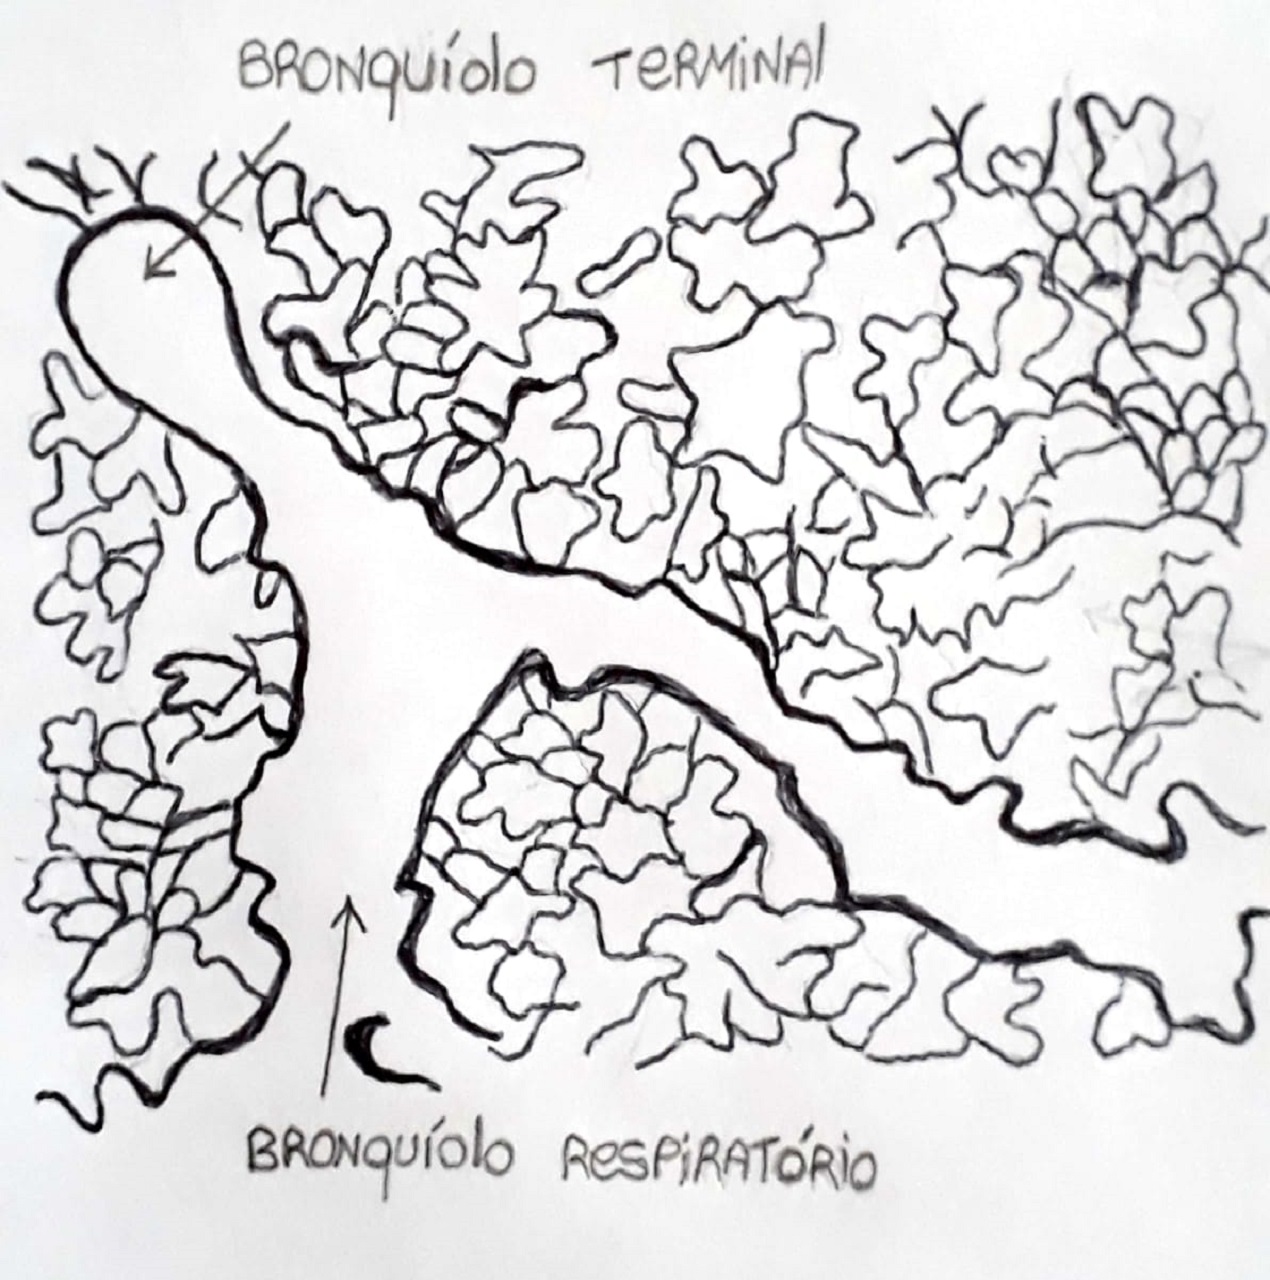 BRONQUÍOLO TERMINAL
BRONQUÍOLO RESPIRATÓRIO